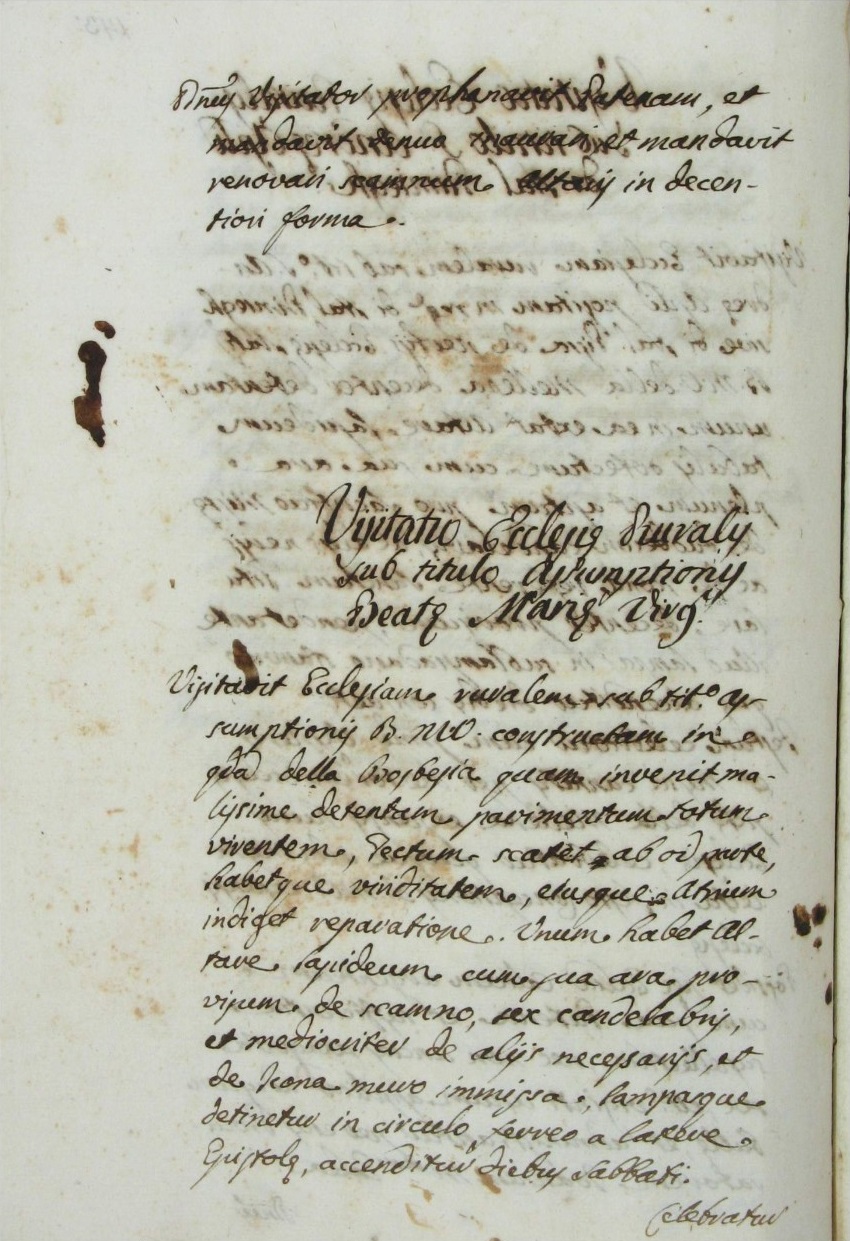 Dnus Visitator prophanavit Patenam, et
mandavit denuo inaurari et mandavit
renovari scamnum Altaris in decen-
tiori forma.
Visitatio Ecclesię Ruralis
sub titulo Assumptionis
Beatę Marię Virg.
Visitavit Ecclesiam ruralem sub tit.o As-
sumptionis B. M. V. constructam in
della quam invenit ma-
lissime detentam, pavimentum totum
viventem, Tectum scatet ab parte,
habetque viriditatem, eiusque Atrium
indiget reparatione. Unum habet Al-
tare lapideum cum sua ara pro-
visum de scamno, sex candelabris,
et mediocriter de alijs necessarijs, et
de Icona muro immissa; lampasque
detinetur in circulo ferreo a latere
Epistolę, accenditur diebus Sabbati.
Celebratur